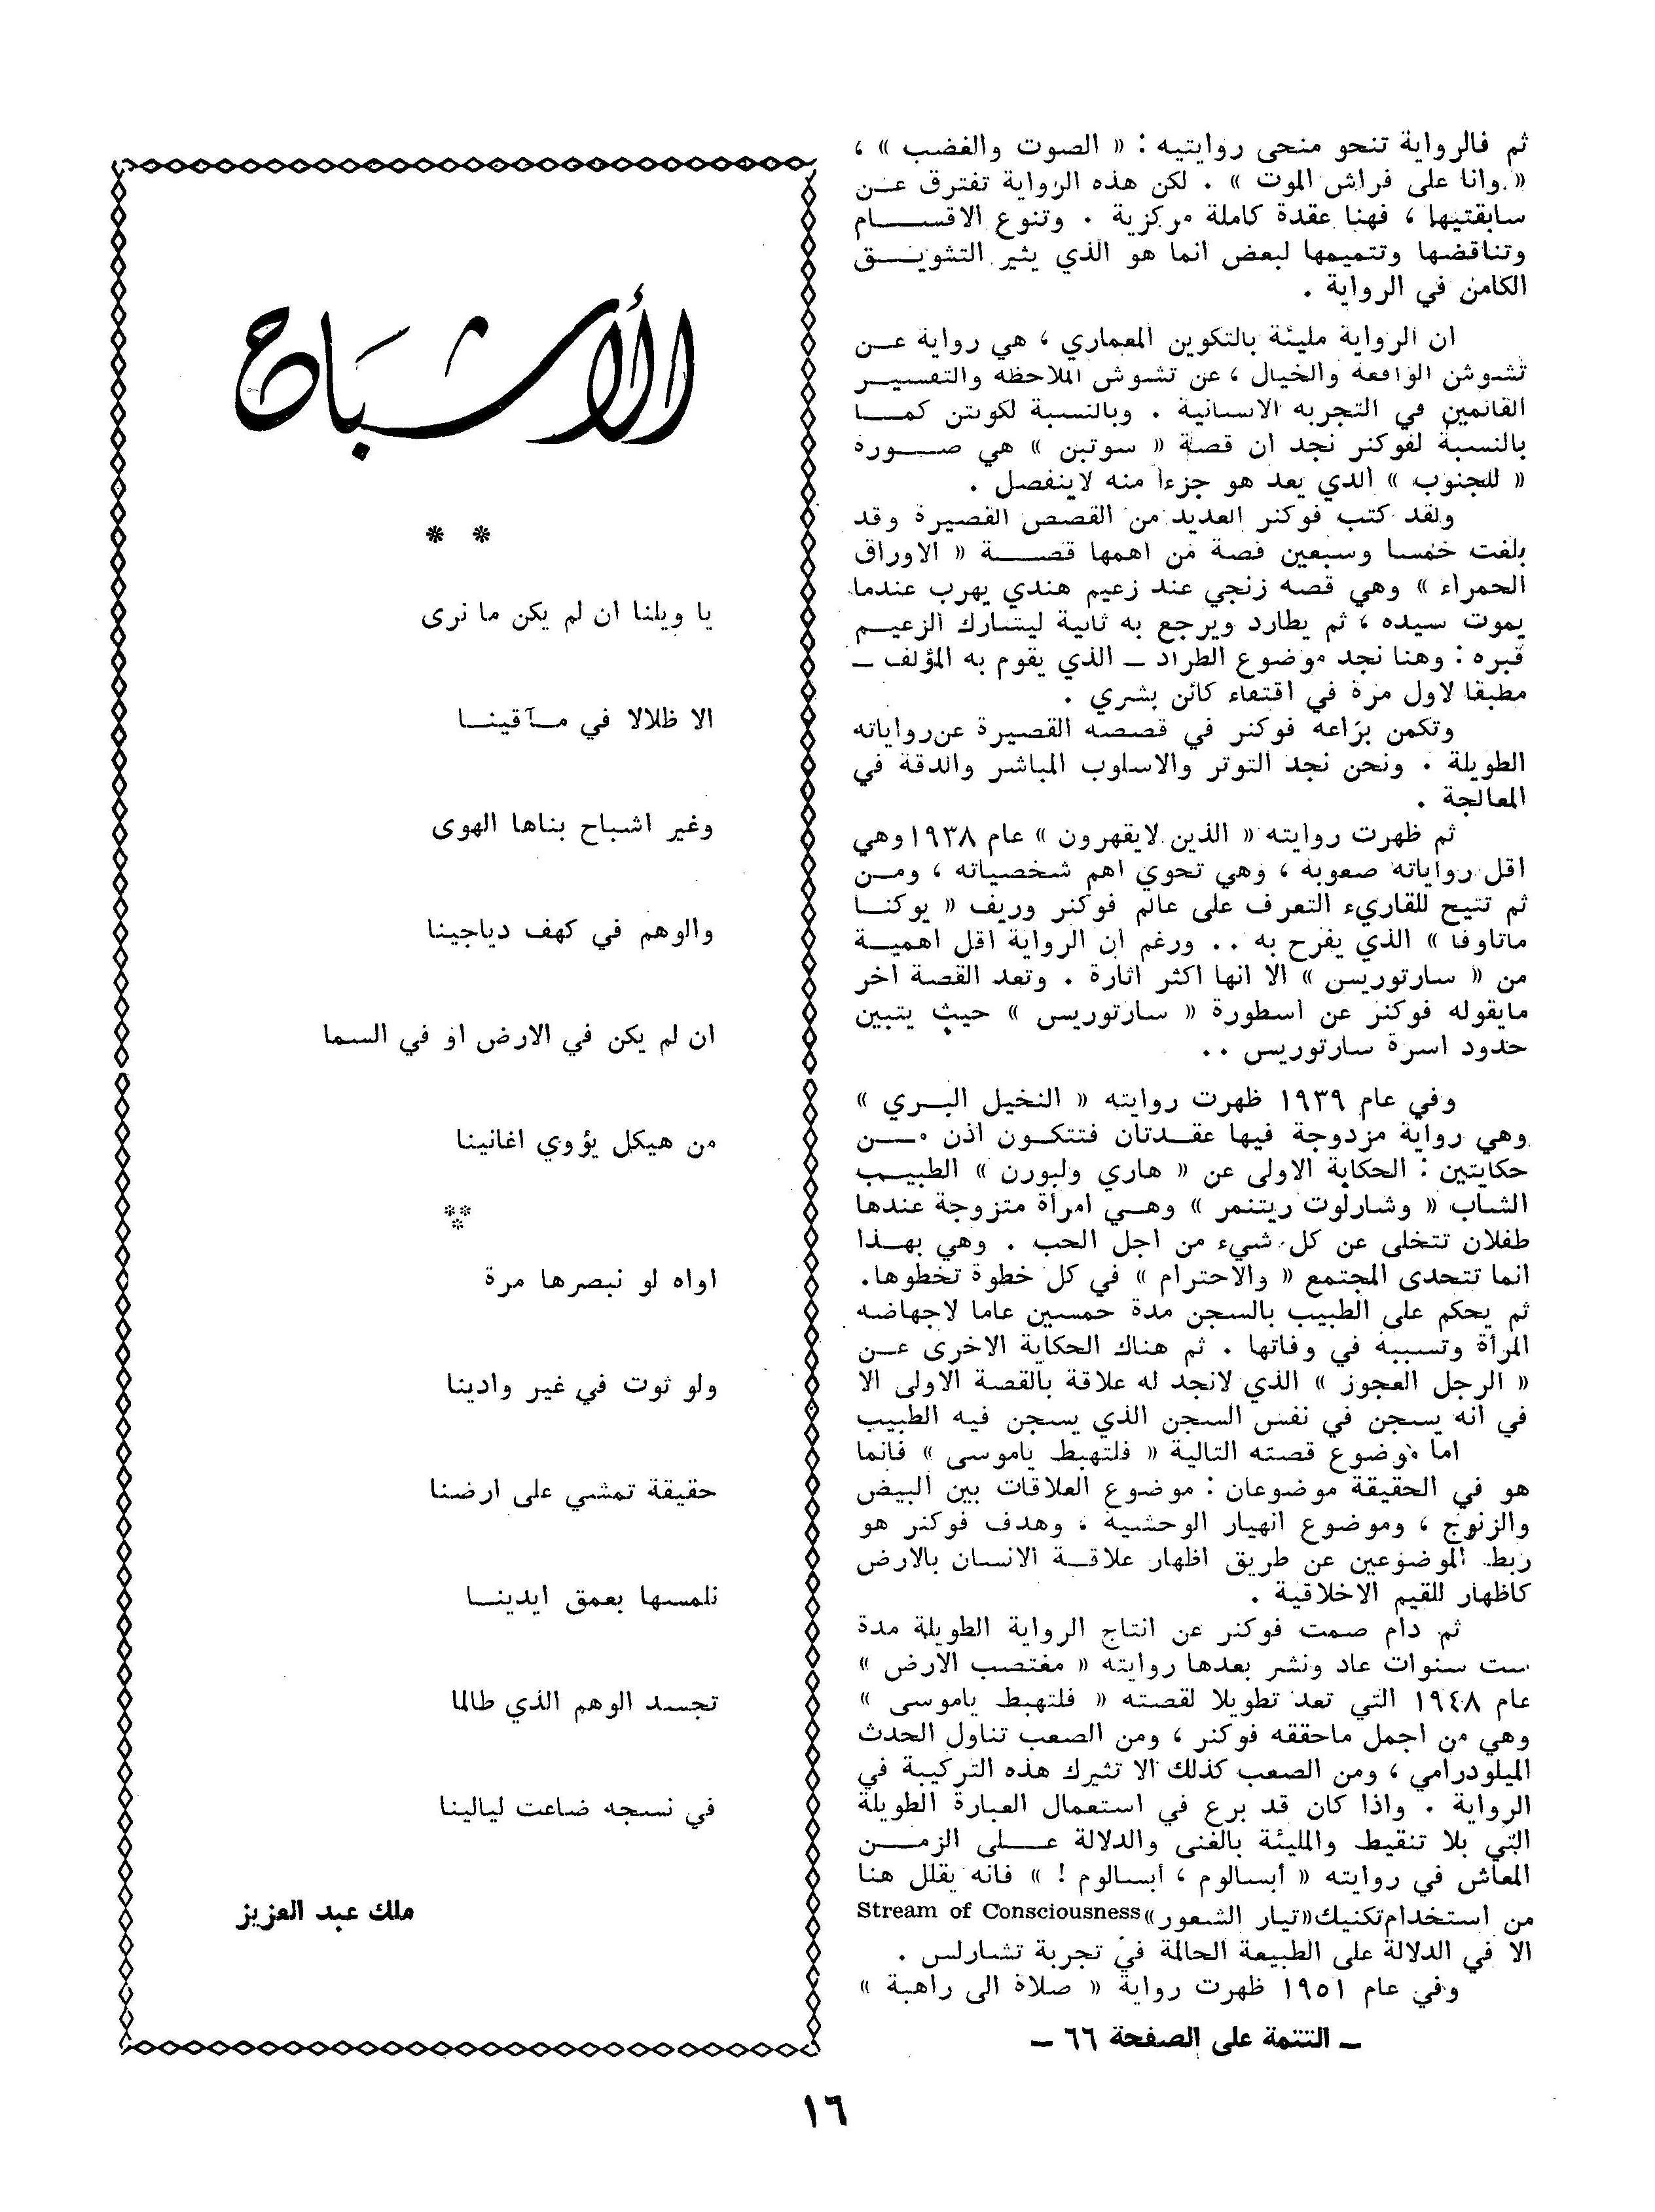 ثم فالرواية تنحو منحى روايتيه : « الصوت والغضب » ،
« وانا على فراش الموت » . لكن هذه الرواية تفترق عن
سابقتيها ، فهنا عقدة كاملة مركزية . وتنوع الاقسام
وتناقضها وتتميمها لبعض انما هو الذي يثير التشويق
الكامن في الرواية .
ان الرواية مليئة بالتكوين المعماري ، هي رواية عن
تشوش الواقعة والخيال ، عن تشوش الملاحظة والتفسير
القائمين في التجربة الانسانية . وبالنسبة لكونتن كما
بالنسبة لفوكنر نجد ان قصة « سوتبن » هي صورة
« للجنوب » الذي يعد هو جزءا منه لاينفصل .
ولقد كتب فوكنر العديد من القصص القصيرة وقد
بلغت خمسا وسبعين قصة من اهمها قصة « الاوراق
الحمراء » وهي قصه زنجي عند زعيم هندي يهرب عندما
يموت سيده ، ثم يطارد ويرجع به ثانية ليشارك الزعيم
قبره : وهنا نجد موضوع الطراد ـ الذي يقوم به المؤلف ـ
مطبقا لاول مرة في اقتفاء كائن بشري .
وتكمن براعه فوكنر في قصصه القصيرة عن رواياته
الطويلة . ونحن نجد التوتر والاسلوب المباشر والدقة في
المعالجة .
ثم ظهرت روايته « الذين لايقهرون » عام ١٩٣٨ وهي
اقل رواياته صعوبة ، وهي تحوي اهم شخصياته ، ومن
ثم تتيح للقاريء التعرف على عالم فوكنر وريف « يوكنا
ماتاوفا » الذي يفرح به .. ورغم ان الرواية اقل اهمية
من « سارتوريس » الا انها اكثر اثارة . وتعد القصة اخر
مايقوله فوكنر عن اسطورة « سارتوريس » حيث يتبين
حدود اسرة سارتوريس ..
وفي عام ١٩٣٩ ظهرت روايته « النخيل البري »
وهي رواية مزدوجة فيها عقدتان فتتكون اذن من
حكايتين : الحكاية الاولى عن « هاري ولبورن » الطبيب
الشاب « وشارلوت ريتنمر » وهي امرأة متزوجة عندها
طفلان تتخلى عن كل شيء من اجل الحب . وهي بهذا
انما تتحدى المجتمع « والاحترام » في كل خطوة تخطوها .
ثم يحكم على الطبيب بالسجن مدة خمسين عاما لاجهاضه
المرأة وتسببه في وفاتها . ثم هناك الحكاية الاخرى عن
« الرجل العجوز » الذي لانجد له علاقة بالقصة الاولى الا
في انه يسجن في نفس السجن الذي يسجن فيه الطبيب
اما موضوع قصته التالية « فلتهبط ياموسى » فانما
هو في الحقيقة موضوعان : موضوع العلاقات بين البيض
والزنوج ، وموضوع انهيار الوحشية ، وهدف فوكنر هو
ربط الموضوعين عن طريق اظهار علاقة الانسان بالارض
كاظهار للقيم الاخلاقية .
ثم دام صمت فوكنر عن انتاج الرواية الطويلة مدة
ست سنوات عاد ونشر بعدها روايته « مغتصب الارض »
عام ١٩٤٨ التي تعد تطويلا لقصته « فلتهبط ياموسى »
وهي من اجمل ماحققه فوكنر ، ومن الصعب تناول الحدث
الميلودرامي ، ومن الصعب كذلك الا تثيرك هذه التركيبة في
الرواية . واذا كان قد برع في استعمال العبارة الطويلة
التي بلا تنقيط والمليئة بالغنى والدلالة على الزمن
المعاش في روايته « أبسالوم ، أبسالوم ! » فانه يقلل هنا
من استخدام تكنيك «تيار الشعور» Stream of Consciousness
الا في الدلالة على الطبيعة الحالمة في تجربة تشارلس .
وفي عام ١٩٥١ ظهرت رواية « صلاة الى راهبة »
ـ التتمة على الصفحة ٦٦ ـ
الأشباح
* *
يا ويلنا ان لم يكن ما نرى
الا ظلالا في مآقينا
وغير اشباح بناها الهوى
والوهم في كهف دياجينا
ان لم يكن في الارض او في السما
من هيكل يؤوي اغانينا
***
اواه لو نبصرها مرة
ولو ثوت في غير وادينا
حقيقة تمشي على ارضنا
نلمسها بعمق ايدينا
تجسد الوهم الذي طالما
في نسجه ضاعت ليالينا
ملك عبد العزيز
١٦